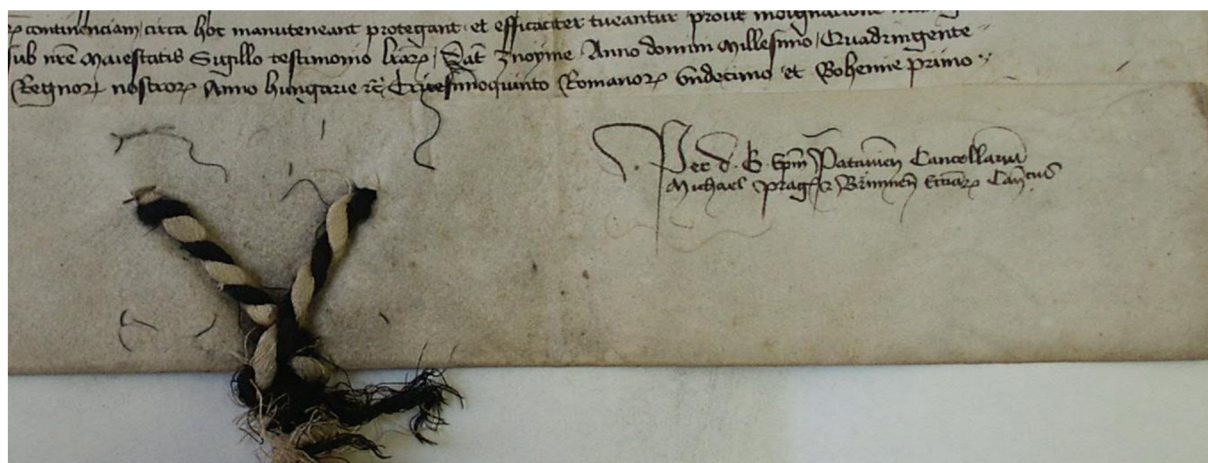 continenciam circa hoc manuteneant protegant et efficaciter tueantur prout indignacione
sub nr̄e Maiestatis Sigillo testimonio lr̄aꝝ Dat̄ Znoyme Anno domini Millesimo Quadringente
Regnoꝝ nostroꝝ Anno hungarie ꝛc̄ Tricesimoquinto Romanoꝝ vndecimo et Bohemie primo
Per d. G. Ep̄m Patauien̄ Cancellariū
Michael Brimnen̄ Can̄cus